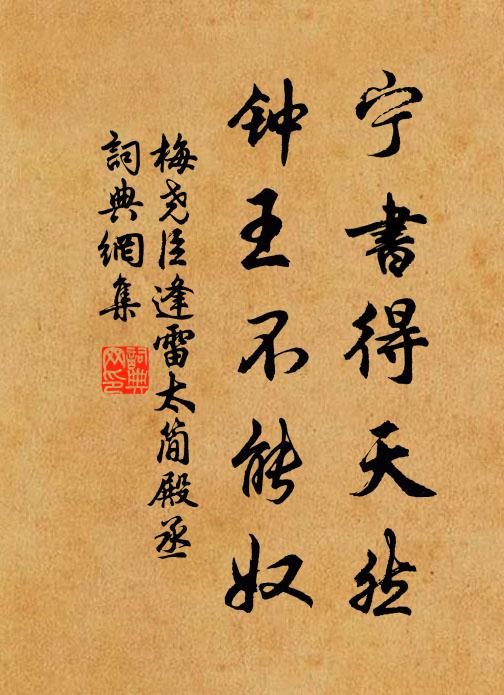 宁书得天然
钟王不能奴
梅尧臣逢雷太简殿丞
詞典網集
詞典网印